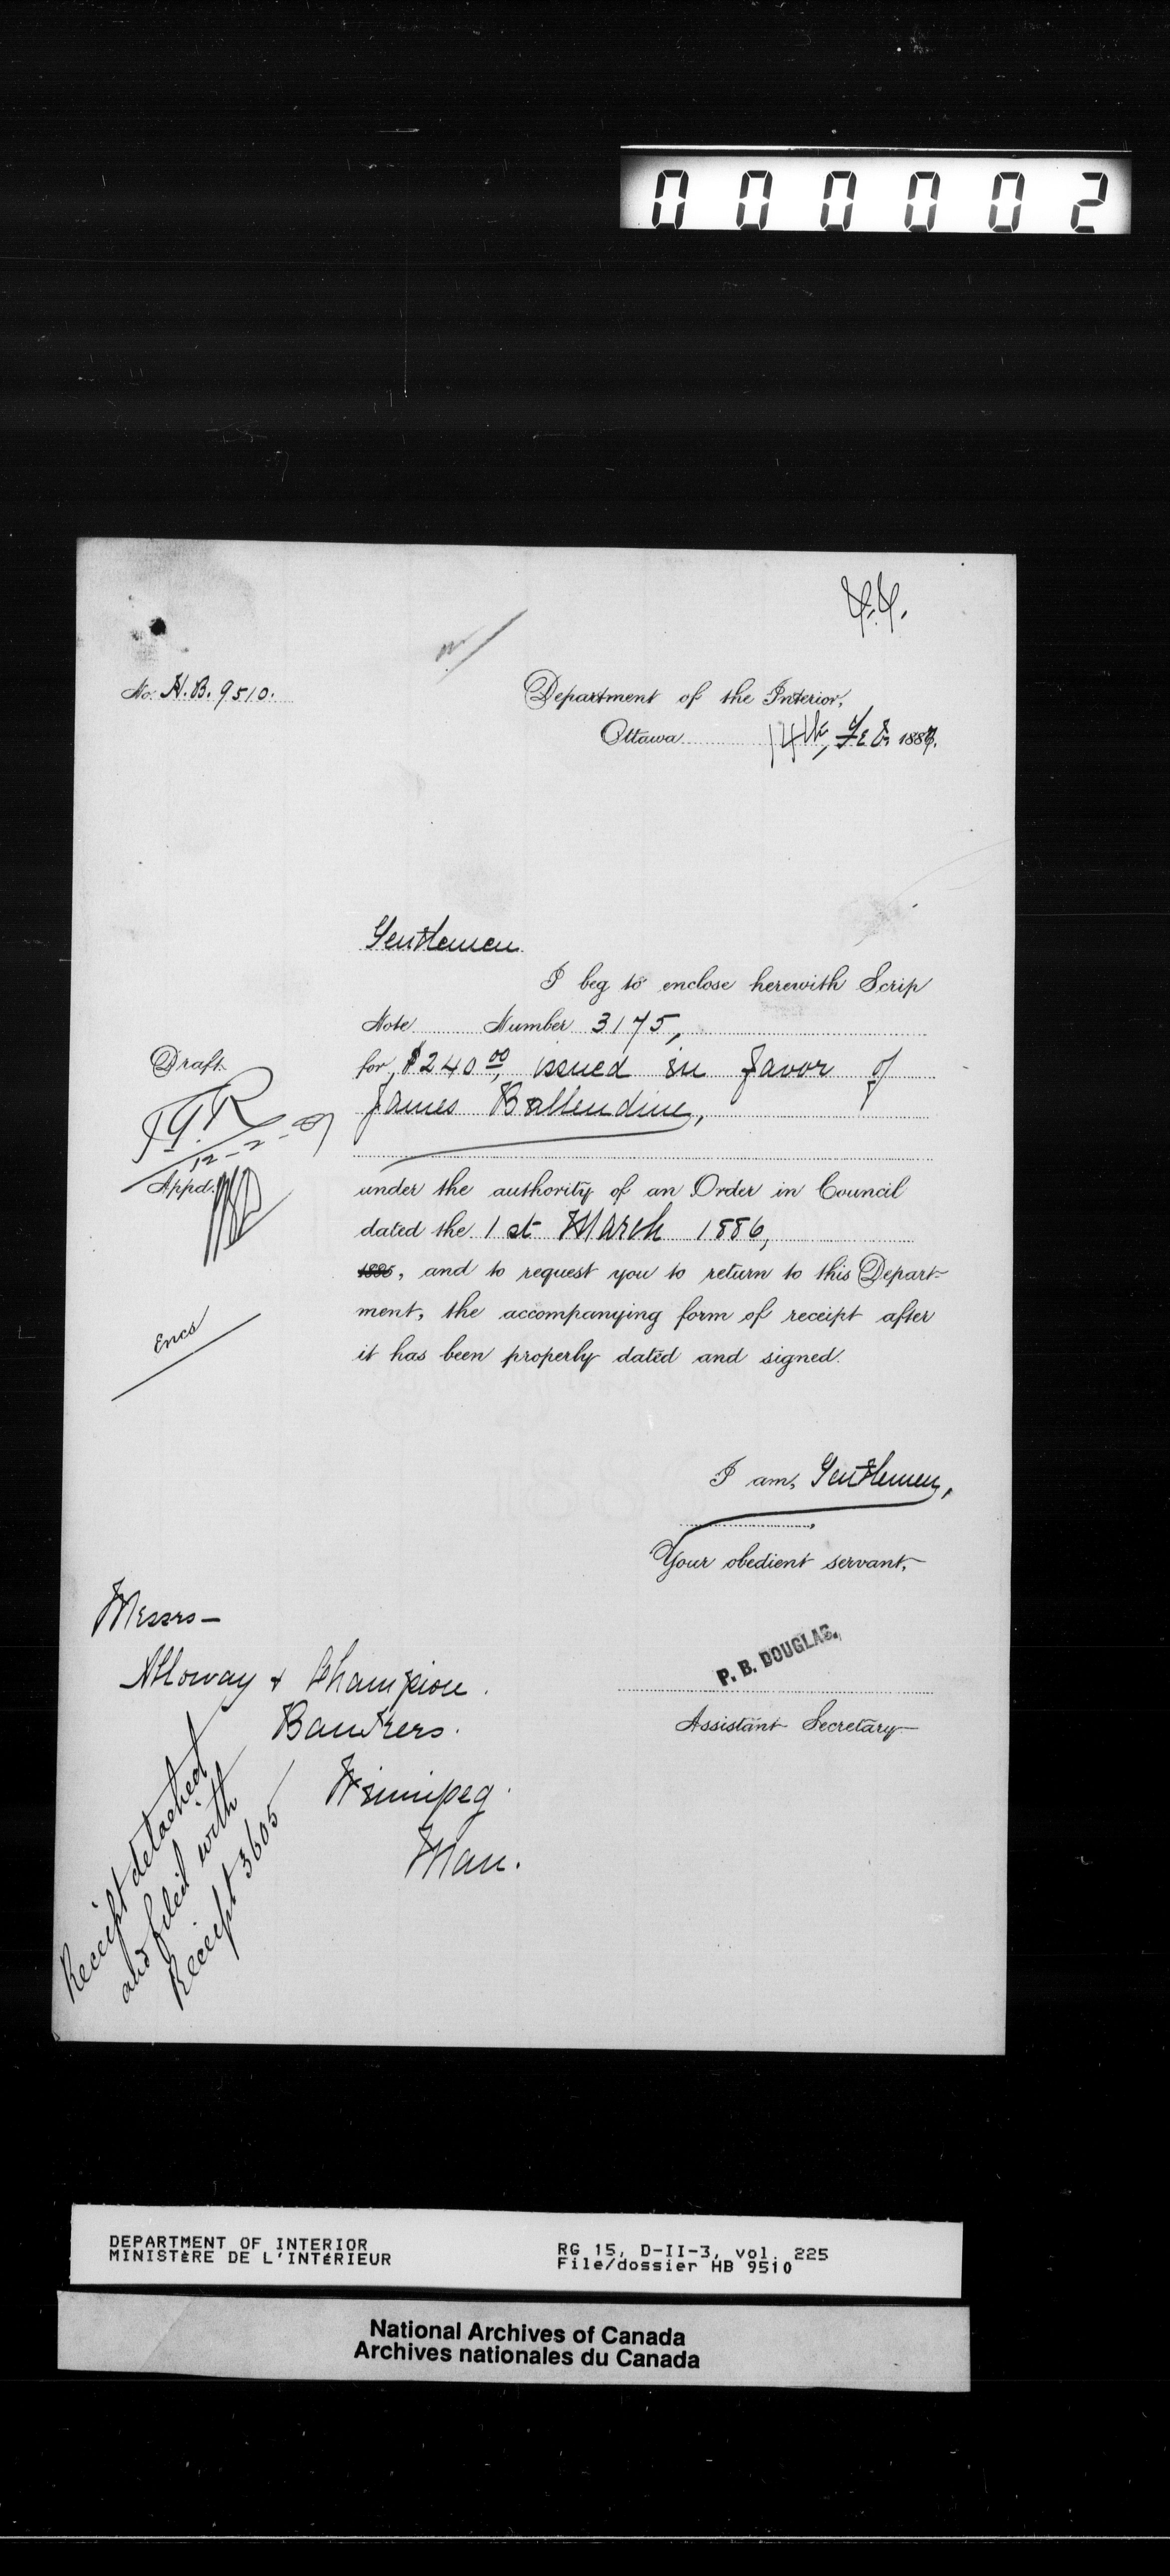 000002
No. H.B. 9510.
Department of the Interior,
Ottawa 14th, Feb. 1887.
Gentlemen
I beg to enclose herewith Scrip
Note Number 3175,
for $240 00, issued in favor of
James Ballendine,
Draft
12-2-87
Appd.
under the authority of an Order in Council
dated the 1st March 1886,
1885, and to request you to return to this Depart-
ment, the accompanying form of receipt after
it has been properly dated and signed.
Encs
I am, Gentlemen,
Your obedient servant,
P. B. DOUGLAS.
Assistant Secretary
Messrs—
Alloway & Champion.
Bankers.
Winnipeg.
Man.
Receipt detached
and filed with
Receipt 3605
DEPARTMENT OF INTERIOR
MINISTÈRE DE L'INTÉRIEUR
RG 15, D-II-3, vol. 225
File/dossier HB 9510
National Archives of Canada
Archives nationales du Canada